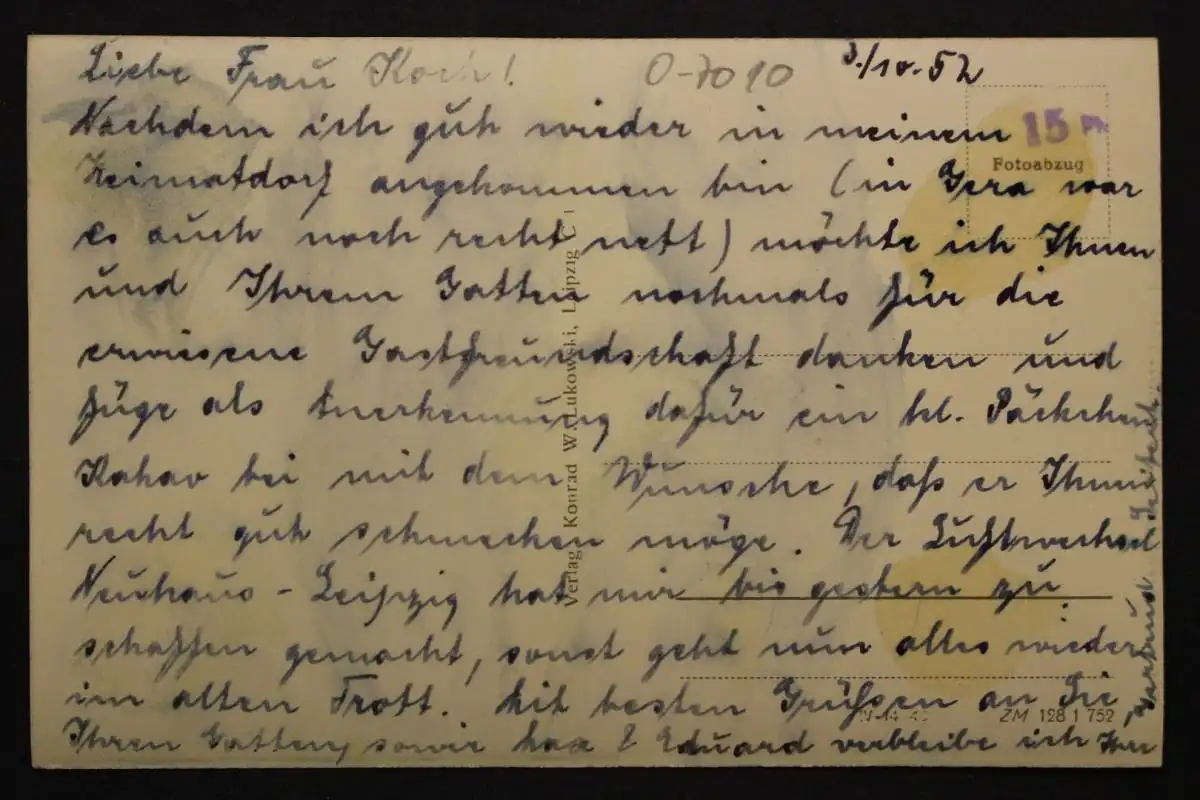 Liebe Frau Koch!
O-7010
3./10.52
15 Pf.
Fotoabzug
Nachdem ich gut wieder in meinem
Heimatdorf angekommen bin (in Gera war
es auch noch recht nett) möchte ich Ihnen
und Ihrem Gatten nochmals für die
erwiesene Gastfreundschaft danken und
füge als Anerkennung dafür ein kl. Päckchen
Kakao bei mit dem Wunsche, daß er Ihnen
recht gut schmecken möge. Der Luftwechsel
Neuhaus - Leipzig hat mir bis gestern zu
schaffen gemacht, sonst geht nun alles wieder
im alten Trott. Mit besten Grüßen an Sie,
Ihren Gatten, sowie Eduard verbleibe ich Ihr
Verlag Konrad W. Lukowski, Leipzig C 1
ZM 128 1 752